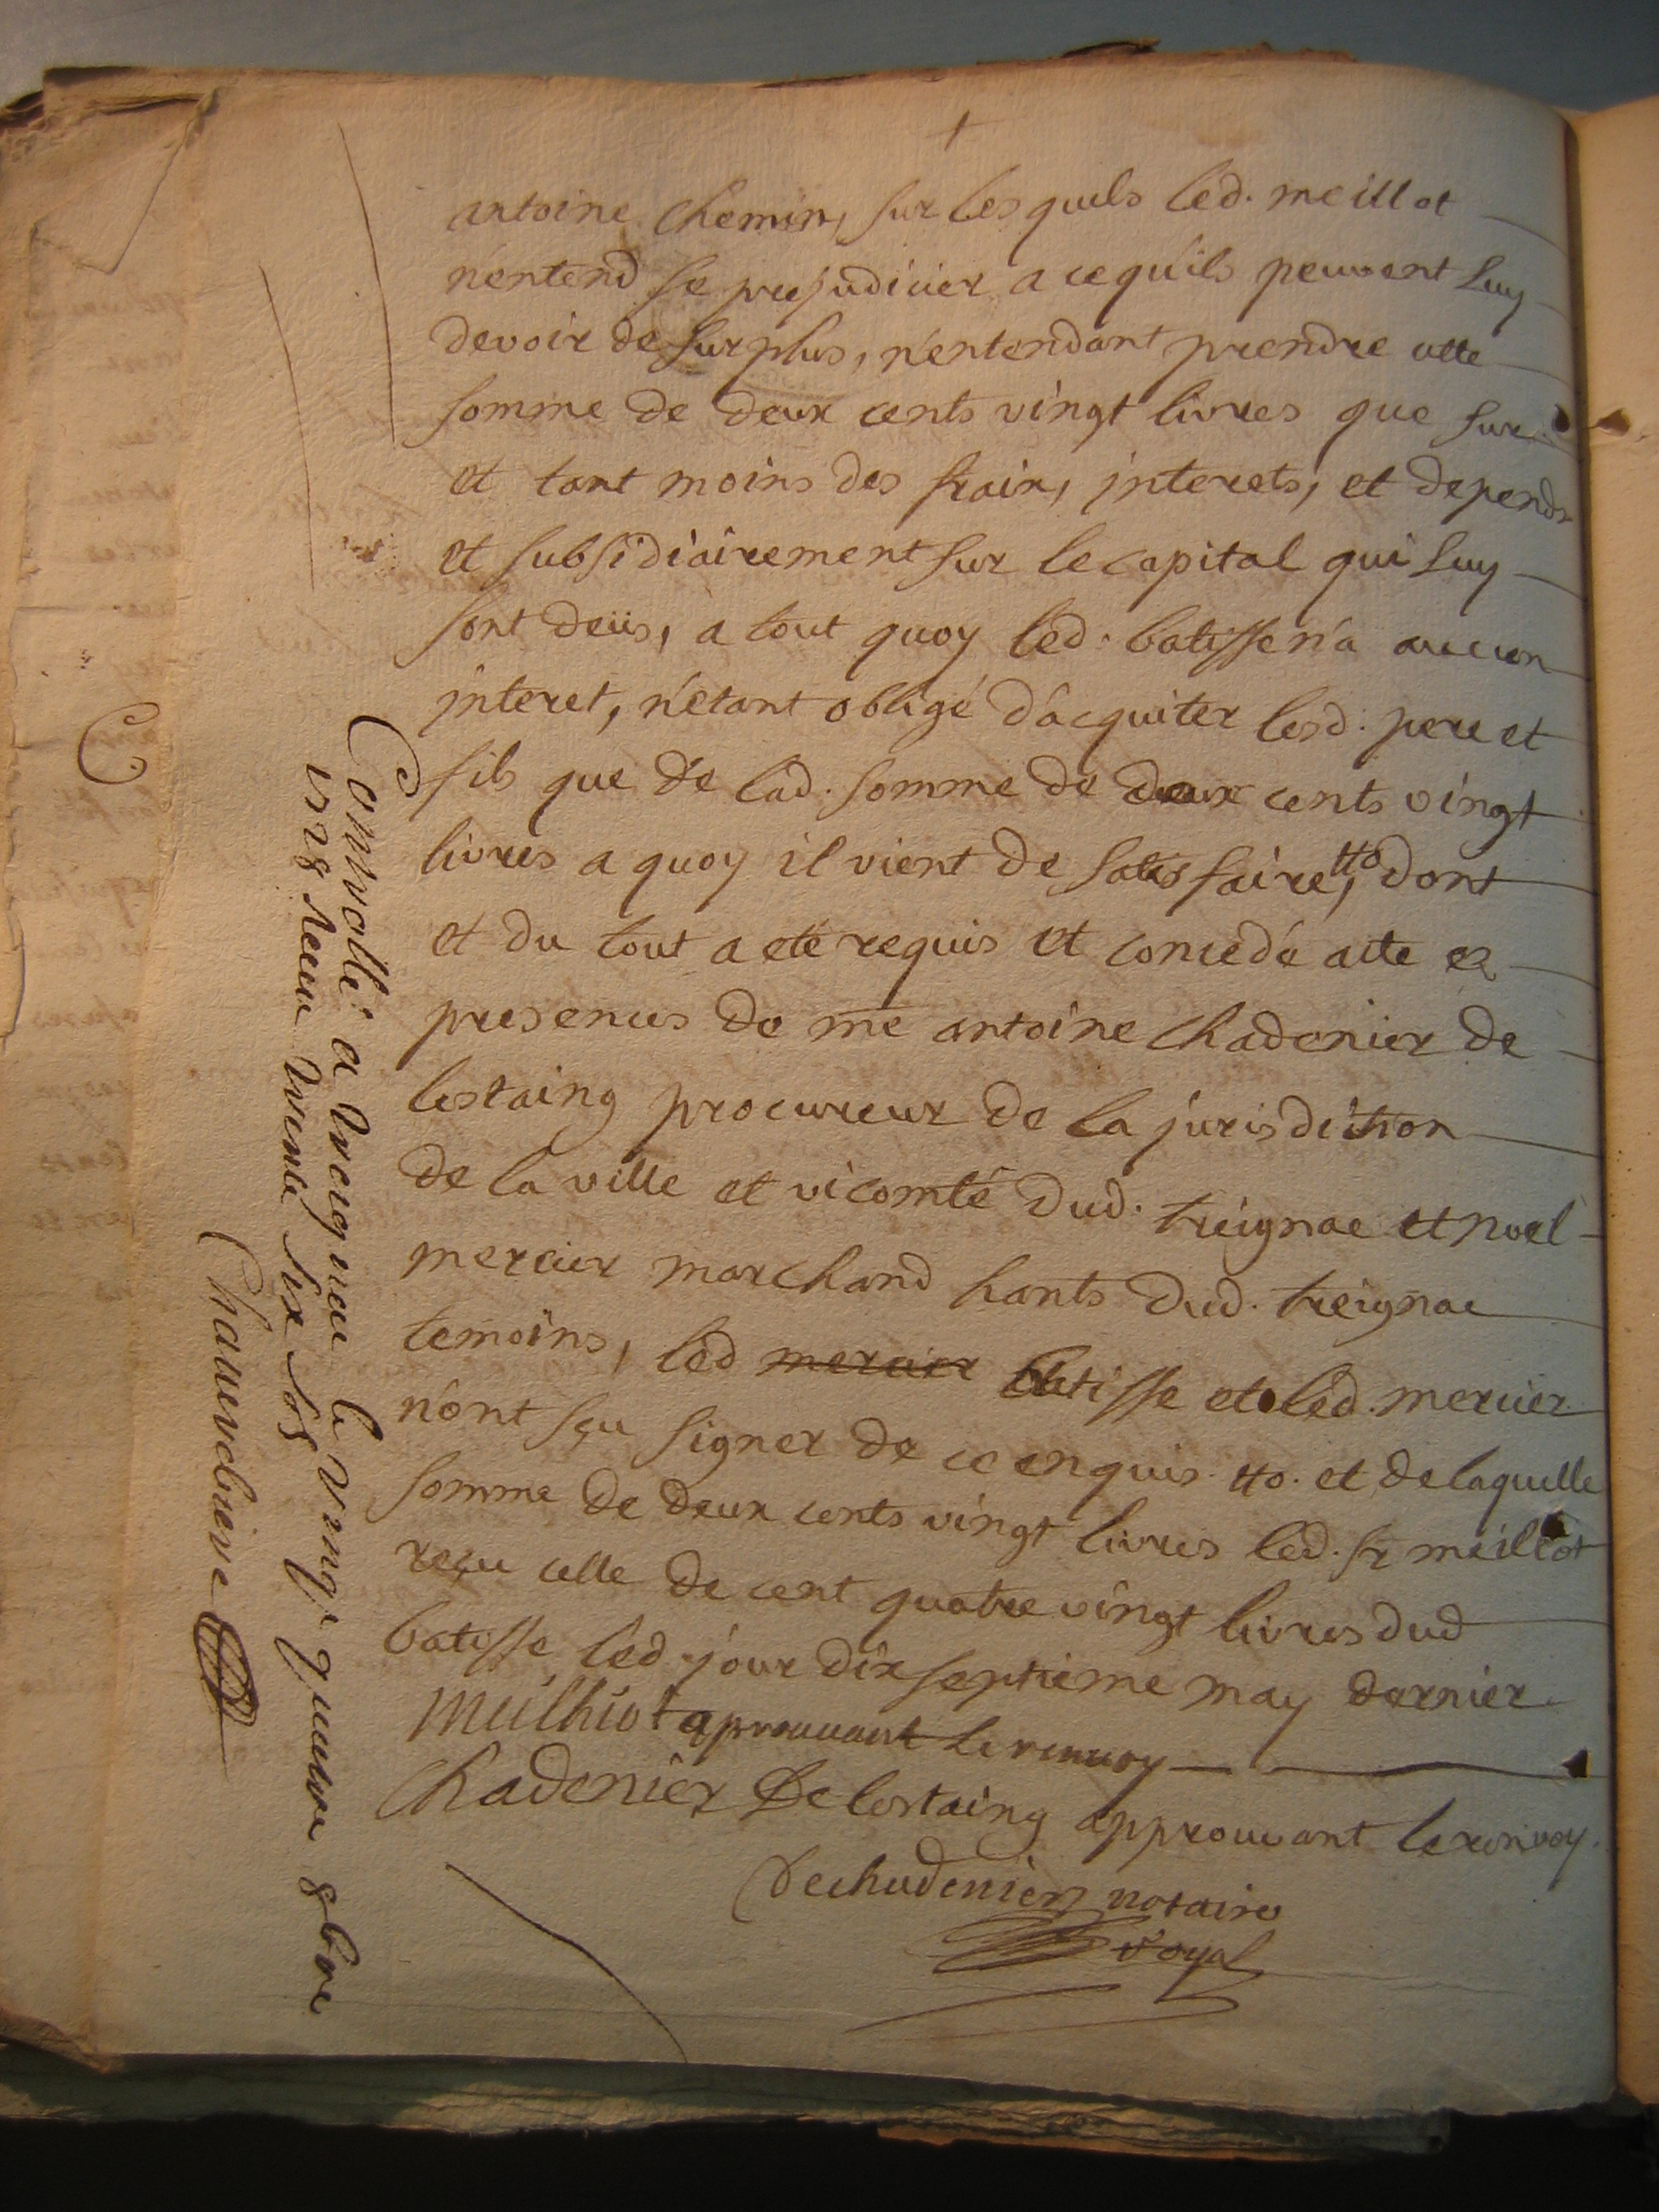 antoine chemin, sur lesquels led. meillot
n'entend se prejudicier a ce qu'ils peuvent luy
devoir de surplus, n'entendant prendre cette
somme de deux cents vingt livres que sur
et tant moins des frais, interets, et depends
et subsidiairement sur le capital qui luy
sont deüs, a tout quoy led. batisse n'a aucun
interet, n'etant obligé d'acquiter lesd. pere et
fils que de lad. somme de deux cents vingt
livres a quoy il vient de satisfaire, tto dont
et du tout a eté requis et concedé acte ez
presences de me antoine chadenier de
lestaing procureur de la jurisdiction
de la ville et vicomté dud. treignac et noel
mercier marchand hants dud. treignac
temoins, led mercier batisse et led. mercier
n'ont sçu signer de ce enquis. tto. et de laquelle
somme de deux cents vingt livres led. sr meillot
reçu celle de cent quatre vingt livres dud
batisse led. jour dix septieme may dernier
Meilhiot aprouvant le renvoy
Chadenier De lestaing approuvant le renvoy.
Dechadenier notaire
royal
Controllé a treignac le vingt quatre 8bre
1728 receu trente six sols
Chauvebiere